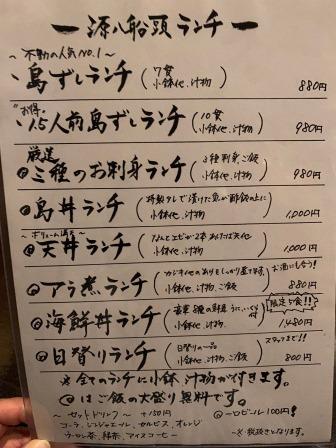 源八船頭ランチ
～不動の人気No.1～
島ずしランチ (7貫 小鉢他、汁物) 880円
お得。
1.5人前島ずしランチ (10貫 小鉢他、汁物) 980円
厳選
◎三種のお刺身ランチ (3種刺身ご飯 小鉢他、汁物) 980円
◎島丼ランチ (特製タレで漬けた魚が酢飯の上に 小鉢他、汁物) 1,000円
～ボリューム満点～
◎天丼ランチ (なんとエビが2本あたたは天化 小鉢他、汁物) 1,000円
お酒にも合う!
◎アラ煮ランチ (カジキマグロのありをしっかり煮てます 小鉢、汁物、ご飯) 880円
限定5食!!
◎海鮮丼ランチ (豪華8種の鮮魚 うに、いくら付 小鉢他、汁物) 1,480円
スタッフまで!!
◎日替りランチ (日替りの一品 小鉢他、汁物、ご飯) 800円
※全てのランチに小鉢 汁物が付きます。
◎はご飯の大盛り無料です。
～セットドリンク～ +150円
コーラ、ジンジャエール、カルピス、オレンジ
ウーロン茶、緑茶、アイスコーヒー
◎一口ビール 100円!
※税抜きとなります。